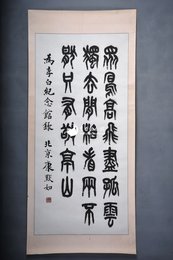 眾鳥高飛盡孤雲
獨去閒相看兩不
厭只有敬亭山
為李白紀念館錄 北京康默如